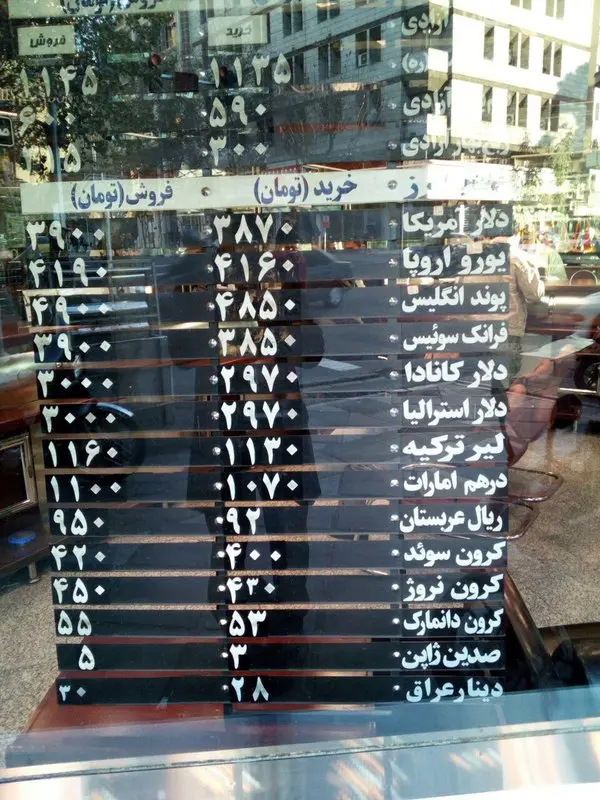 خرید فروش
آزادی ۱۱۳۵ ۱۱۴۵
آزادی ۵۹۰ ۶۰۰
آزادی ۳۰۰
خرید (تومان) فروش (تومان)
دلار آمریکا ۳۸۷۰ ۳۹۰۰
یورو اروپا ۴۱۶۰ ۴۱۹۰
پوند انگلیس ۴۸۵۰ ۴۹۰۰
فرانک سوئیس ۳۸۵۰ ۳۹۰۰
دلار کانادا ۲۹۷۰ ۳۰۰۰
دلار استرالیا ۲۹۷۰ ۳۰۰۰
لیر ترکیه ۱۱۳۰ ۱۱۶۰
درهم امارات ۱۰۷۰ ۱۱۰۰
ریال عربستان ۹۲ ۹۵۰
کرون سوئد ۴۰۰ ۴۲۰
کرون نروژ ۴۳۰ ۴۵۰
کرون دانمارک ۵۳ ۵۵
صدین ژاپن ۳ ۵
دینار عراق ۲۸ ۳۰